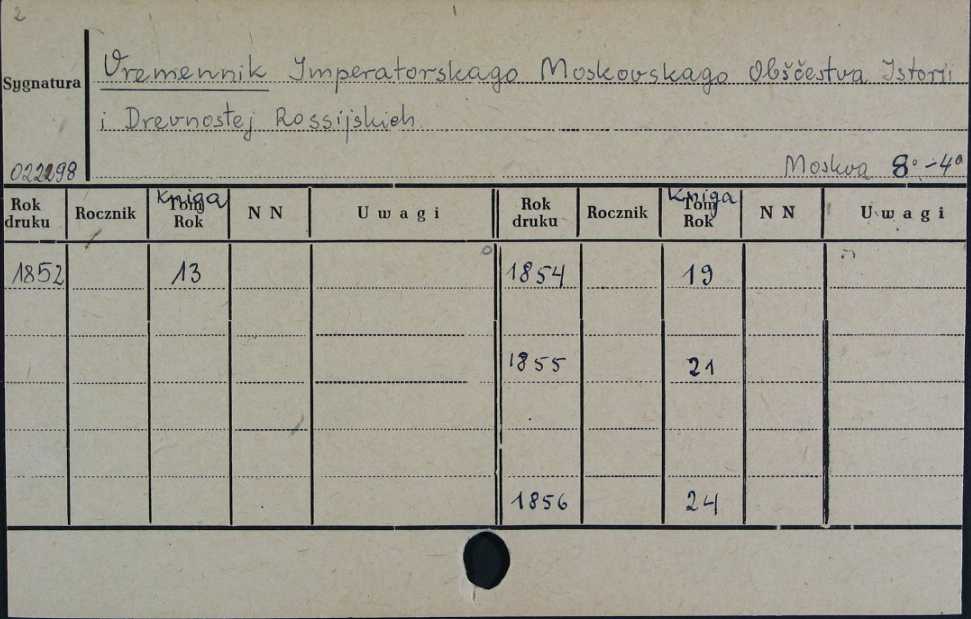 2
Sygnatura
Vremennik Imperatorskago Moskovskago Obščestva Istorii
i Drevnostej Rossijskich
022298
Moskva 8° - 4°
Rok druku Rocznik Kniga Tom Rok N N Uwagi Rok druku Rocznik Kniga Tom Rok N N Uwagi
1852 13 1854 19
1855 21
1856 24